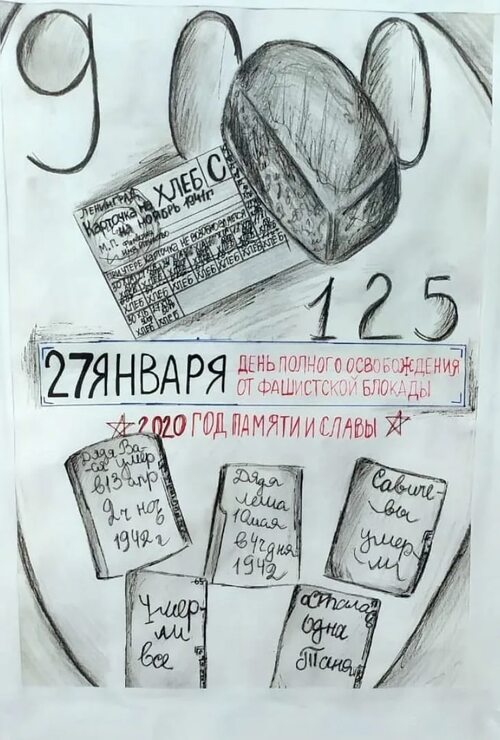 900
ЛЕНИНГРАД
ХЛЕБ
С
Карточка на
НА НОЯБРЬ 1941г
М.П.
КАРТОЧКА НЕ ВОЗОБНОВЛЯЕТСЯ
ХЛЕБ ХЛЕБ ХЛЕБ ХЛЕБ ХЛЕБ ХЛЕБ
ХЛЕБ ХЛЕБ
125
27 ЯНВАРЯ
ДЕНЬ ПОЛНОГО ОСВОБОЖДЕНИЯ
ОТ ФАШИСТСКОЙ БЛОКАДЫ
2020 ГОД ПАМЯТИ И СЛАВЫ
Дядя Ва-
ся умер
в 13 апр
2 ч ноч
1942 г
Дядя
Леша
10 мая
в 4 ч дня
1942
Савиче-
вы
умер-
ли
Умер-
ли
все
Осталась
одна
Таня